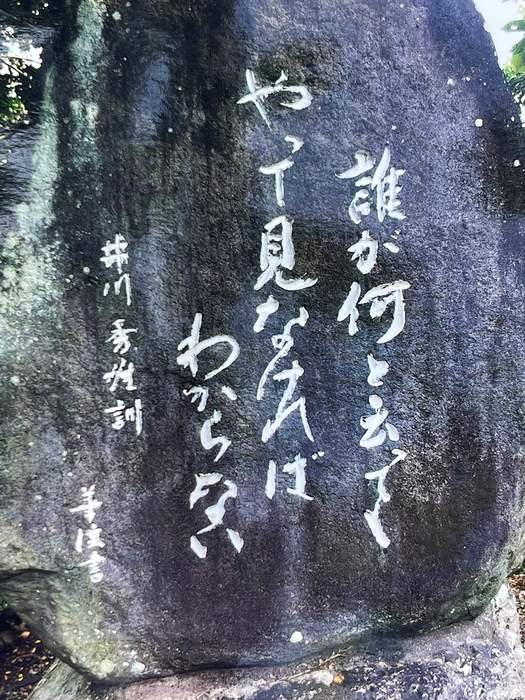 誰が何と云っても
やって見なければ
わからない
井川 秀雄 訓
書